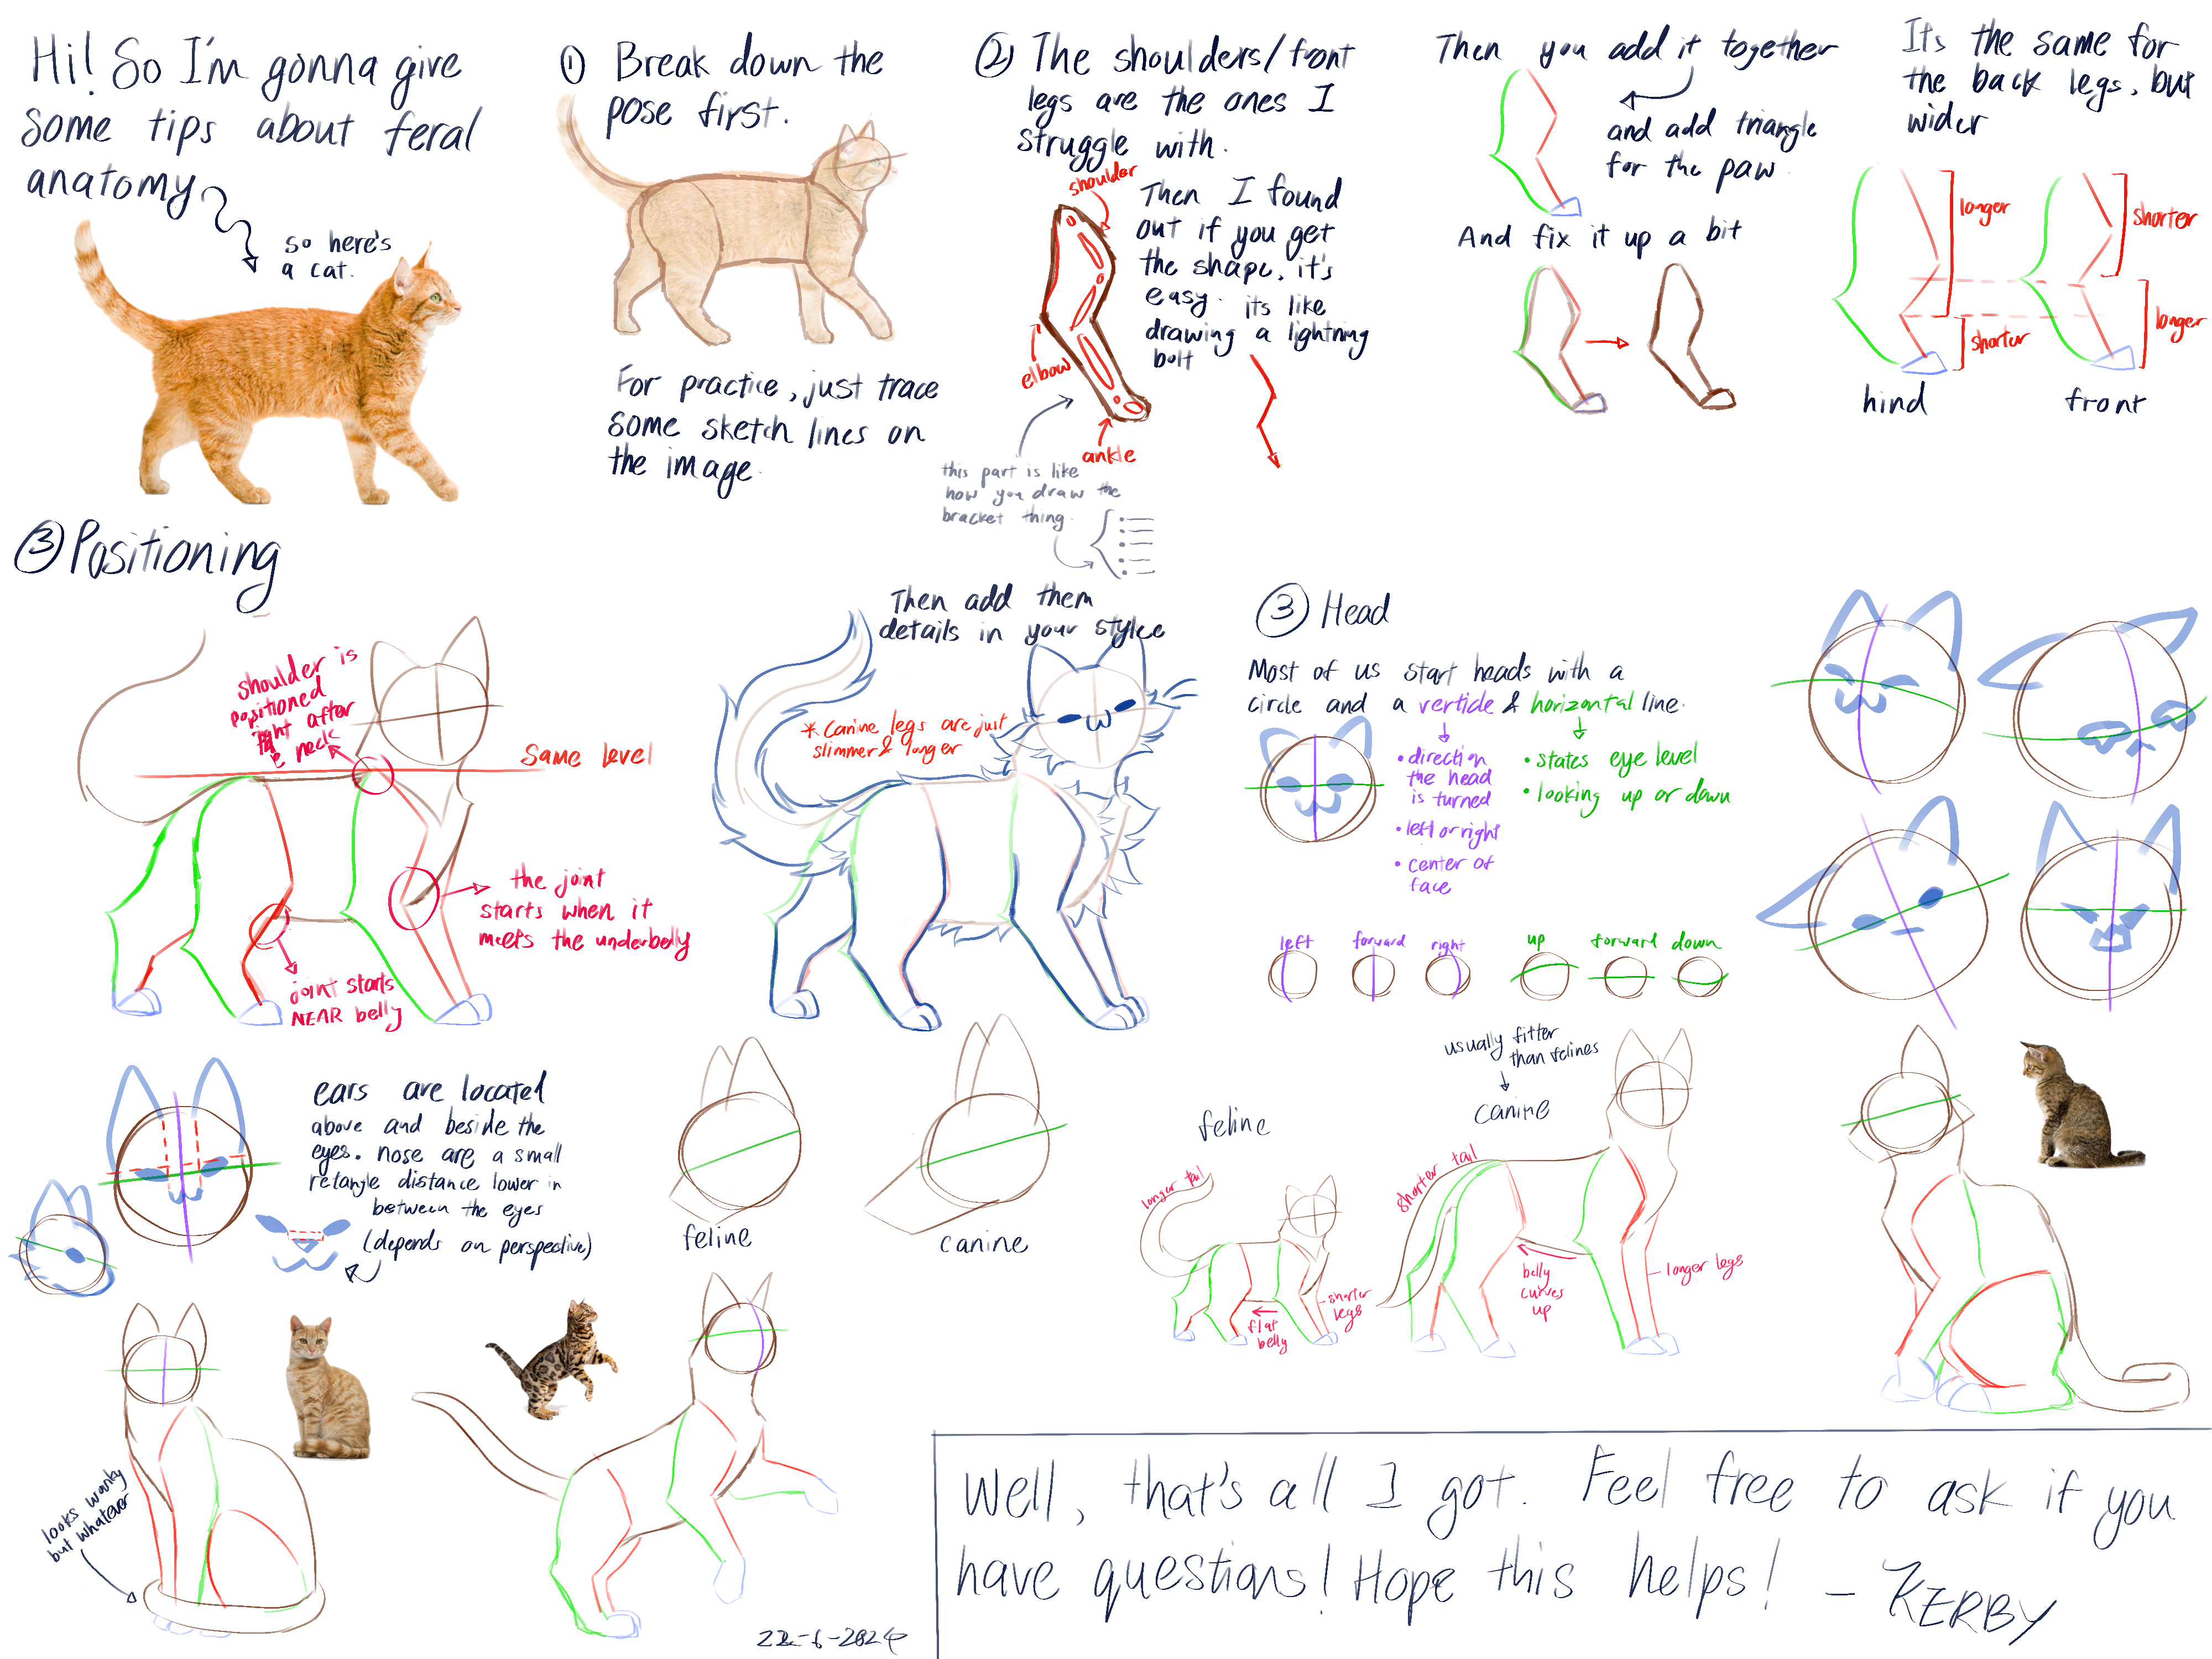 Hi! So I'm gonna give
some tips about feral
anatomy
so here's
a cat.
① Break down the
pose first.
For practice, just trace
some sketch lines on
the image.
② The shoulders/front
legs are the ones I
struggle with.
shoulder
elbow
ankle
Then I found
out if you get
the shape, it's
easy. its like
drawing a lightning
bolt
this part is like
how you draw the
bracket thing.
Then you add it together
and add triangle
for the paw
And fix it up a bit
Its the same for
the back legs, but
wider
longer
shorter
shorter
longer
hind
front
③ Positioning
shoulder is
positioned
right after
the neck
Same level
the joint
starts when it
meets the underbelly
joint starts
NEAR belly
Then add them
details in your stylee
* Canine legs are just
slimmer & longer
③ Head
Most of us start heads with a
circle and a verticle & horizontal line.
• direction
the head
is turned
• left or right
• center of
face
• states eye level
• looking up or down
left
forward
right
up
forward
down
ears are located
above and beside the
eyes. nose are a small
retangle distance lower in
between the eyes
(depends on perspective)
feline
canine
feline
longer tail
flat
belly
shorter
legs
usually fitter
than felines
canine
shorter tail
belly
curves
up
longer legs
looks wonky
but whatever
22-6-2024
Well, that's all I got. Feel free to ask if you
have questions! Hope this helps! - KERBY